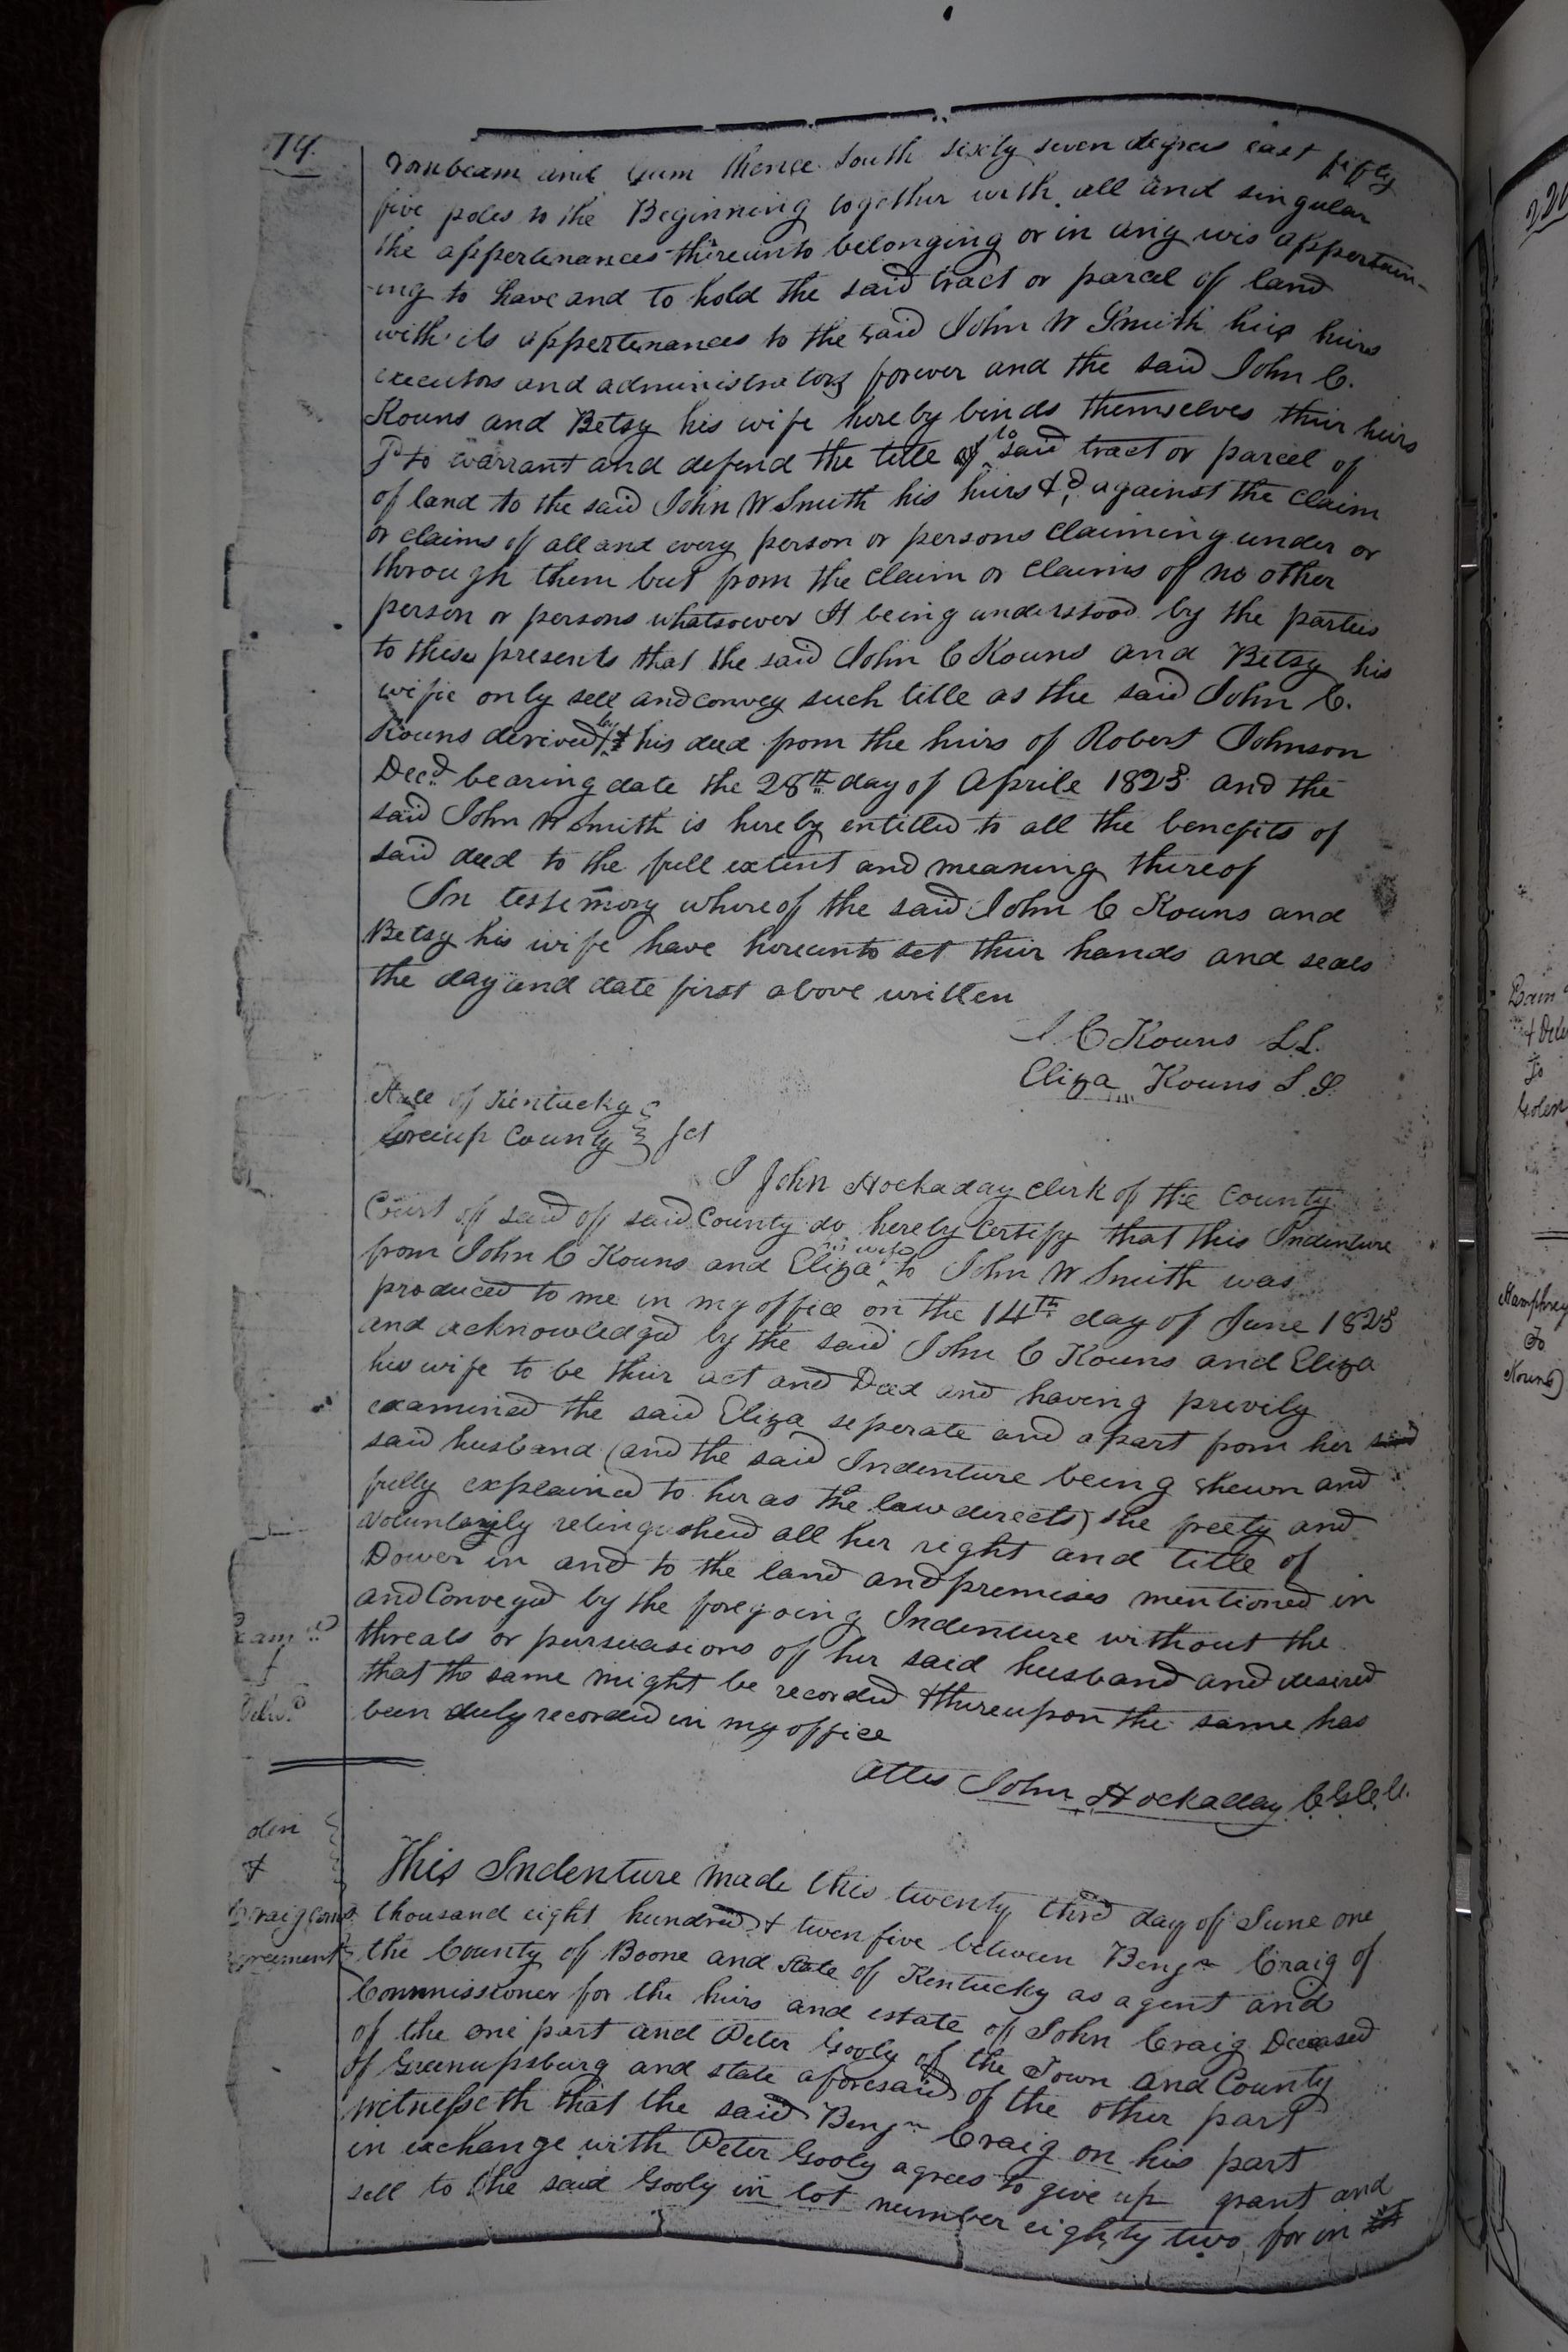 19.
and Gum thence South sixty seven degrees east fifty
five poles to the Beginning together with all and singular
the appertenances thereunto belonging or in any wis appertain-
-ing to have and to hold the said tract or parcel of land
with its appertenances to the said John W Smith his heirs
executors and administrators forever and the said John C.
Kouns and Betsy his wife hereby binds themselves their heirs
to warrant and defend the title to said tract or parcel of
of land to the said John W Smith his heirs &c against the claim
or claims of all and every person or persons claiming under or
through them but from the claim or claims of no other
person or persons whatsoever It being understood by the parties
to these presents that the said John C Kouns and Betsy his
wife only sell and convey such title as the said John C.
Kouns derived by his deed from the heirs of Robert Johnson
Decd bearing date the 28th day of Aprile 1825 and the
said John W Smith is hereby entitled to all the benefits of
said deed to the full extent and meaning thereof
In testimony whereof the said John C Kouns and
Betsy his wife have hereunto set their hands and seals
the day and date first above written
J. C Kouns L.S.
Eliza Kouns L.S.
State of Kentucky
Greenup County } Sct
I John Hockaday clerk of the County
Court of said of said County do hereby Certify that this Indenture
from John C Kouns and Eliza his wife to John W Smith was
produced to me in my office on the 14th day of June 1825
and acknowledged by the said John C Kouns and Eliza
his wife to be their act and Deed and having privily
examined the said Eliza seperate and apart from her said
said husband (and the said Indenture being shewn and
fully explained to her as the law directs) she freely and
voluntarily relinquished all her right and title of
Dower in and to the land and premises mentioned in
and Conveyed by the foregoing Indenture without the
threats or pursuasions of her said husband and desired
that the same might be recorded & thereupon the same has
been duly recorded in my office
Attes John Hockaday C.G.C.C.
This Indenture made this twenty third day of June one
thousand eight hundred & twen five between Benjn Craig of
the County of Boone and State of Kentucky as agent and
Commissioner for the heirs and estate of John Craig Deceased
of the one part and Peter Gooly of the Town and County
of Greenupsburg and state aforesaid of the other part
witnesseth that the said Benjn Craig on his part
in exchange with Peter Gooly agrees to give up grant and
sell to the said Gooly in lot number eighty two for in